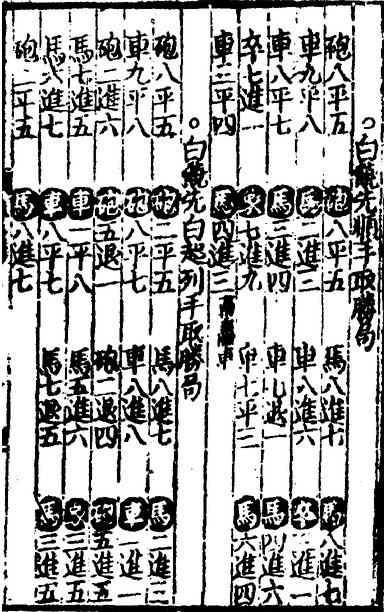 ○白饒先順手取勝局
砲八平五 砲八平五 馬八進七 馬八進七
車九平八 馬二進三 車八進六 卒進一
車八平七 馬三進四 車七退一 馬四進六
卒七進一 象七進九 卒七平三 馬六進四
車二平四 馬四進三
○白饒先白起列手取勝局
砲八平五 砲二平五 馬八進七 馬二進三
車九平八 砲八平七 車八進八 車一進一
砲二進六 砲五退一 砲二退四 砲五進五
馬七進五 車一平八 馬五進六 象三進五
馬八進七 車八平七 馬七退五 馬三進五
砲二平五 馬八進七